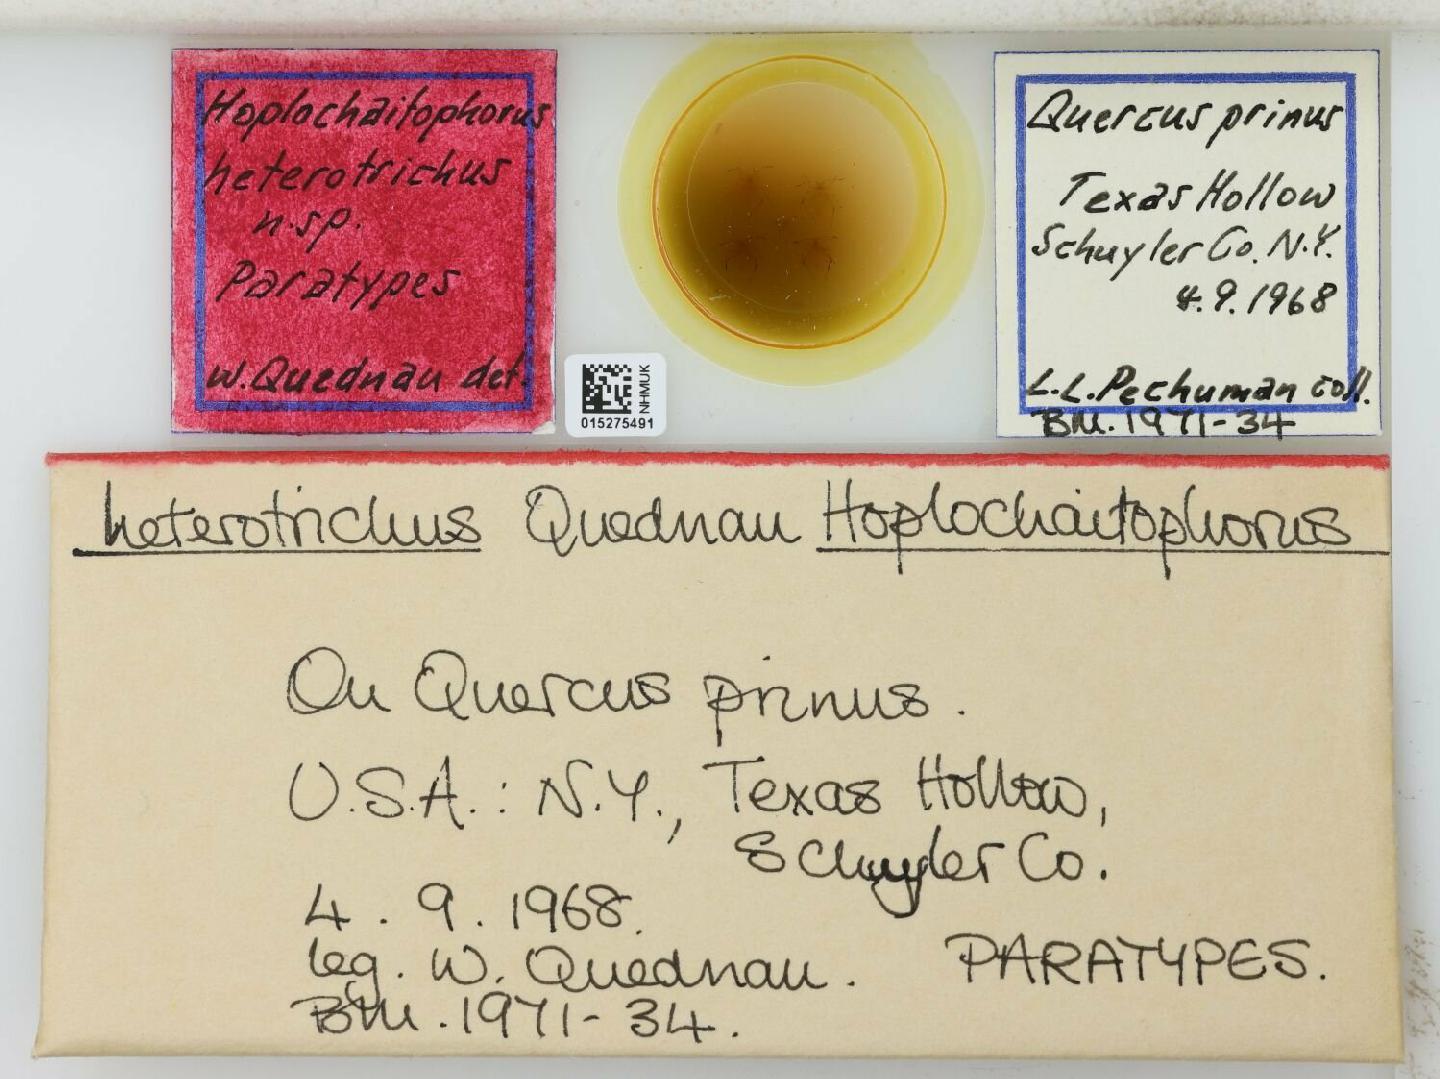 Hoplochaitophorus
heterotrichus
n.sp.
Paratypes
W. Quednau det.
NHMUK
015275491
Quercus prinus
Texas Hollow
Schuyler Co. N.Y.
4.9.1968
L.L. Pechuman coll.
BM. 1971-34
heterotrichus Quednau Hoplochaitophorus
On Quercus prinus.
U.S.A.: N.Y., Texas Hollow,
Schuyler Co.
4. 9. 1968.
leg. W. Quednau. PARATYPES.
BM. 1971-34.